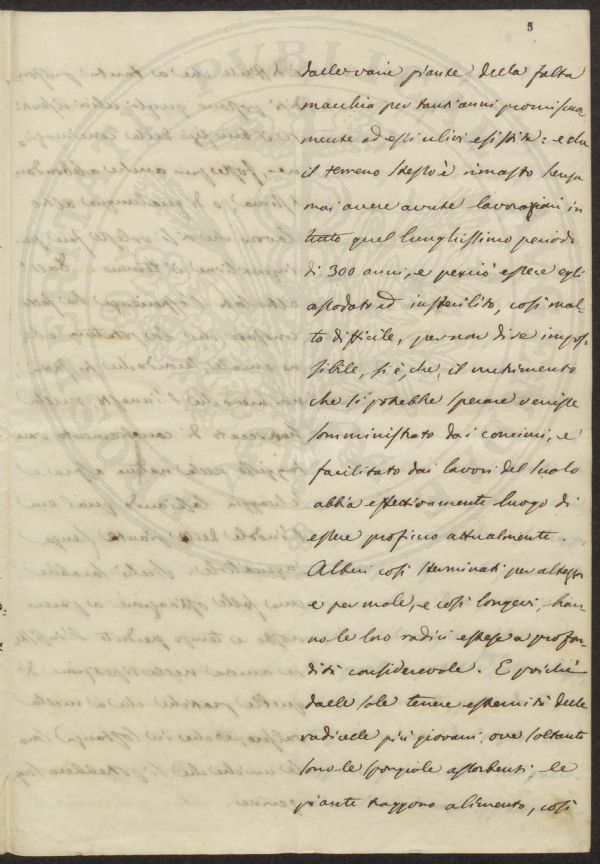 5
dalle varie piante della folta
macchia per tanti anni promiscua
mente ad essi ulivi esistita: e che
il terreno stesso è rimasto senza
mai avere avute lavorazioni in
tutto quel lunghissimo periodo
di 300 anni, e perciò essere egli
assodato ed insterilito, così mol-
to difficile, per non dire impos-
sibile, si è, che, il nutrimento
che si potrebbe sperare venisse
somministrato dai concimi, e
facilitato dai lavori del suolo
abbia effettivamente luogo di
essere proficuo attualmente.
Alberi così sterminati per altezza
e per mole, e così longevi, han-
no le loro radici estese a profon-
dità considerevole. E poichè
dalle sole tenere estremità delle
radicelle più giovani, ove soltanto
sono le spongiole assorbenti, le
piante traggono alimento, così